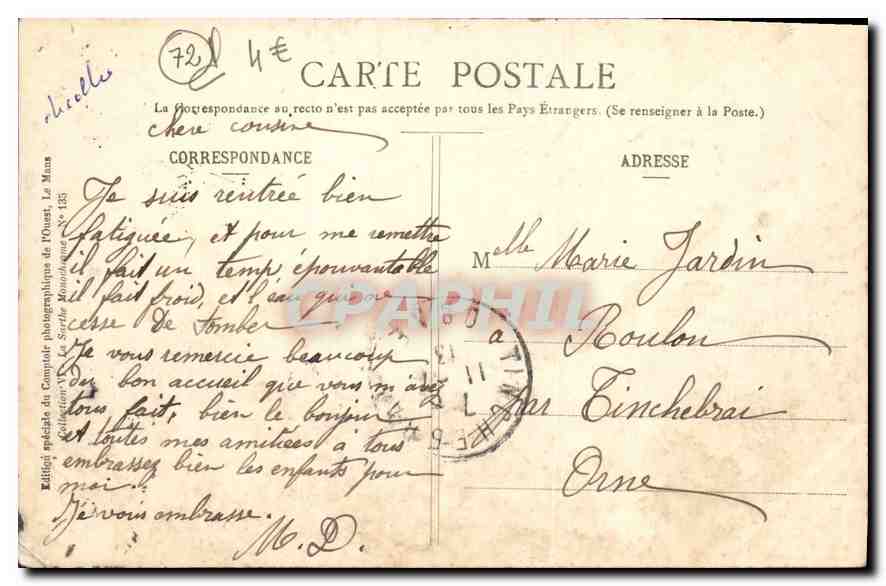 72 4€
CARTE POSTALE
La Correspondance au recto n'est pas acceptée par tous les Pays Étrangers. (Se renseigner à la Poste.)
CORRESPONDANCE
ADRESSE
chère cousine
Je suis rentrée bien
fatiguée, et pour me remettre
il fait un temp épouvantable
il fait froid, et l'eau qui ne
cesse de tomber
Je vous remercie beaucoup
du bon accueil que vous m'avez
tous fait, bien le bonjour
et toutes mes amitiées à tous
embrassez bien les enfants pour
moi.
Je vous embrasse.
M.D.
Melle Marie Jardin
à Roulon
par Tinchebrai
Orne
Edition spéciale du Comptoir photographique de l'Ouest, Le Mans
Collection V. La Sarthe Monochrome Nº 135
CPAPHIL